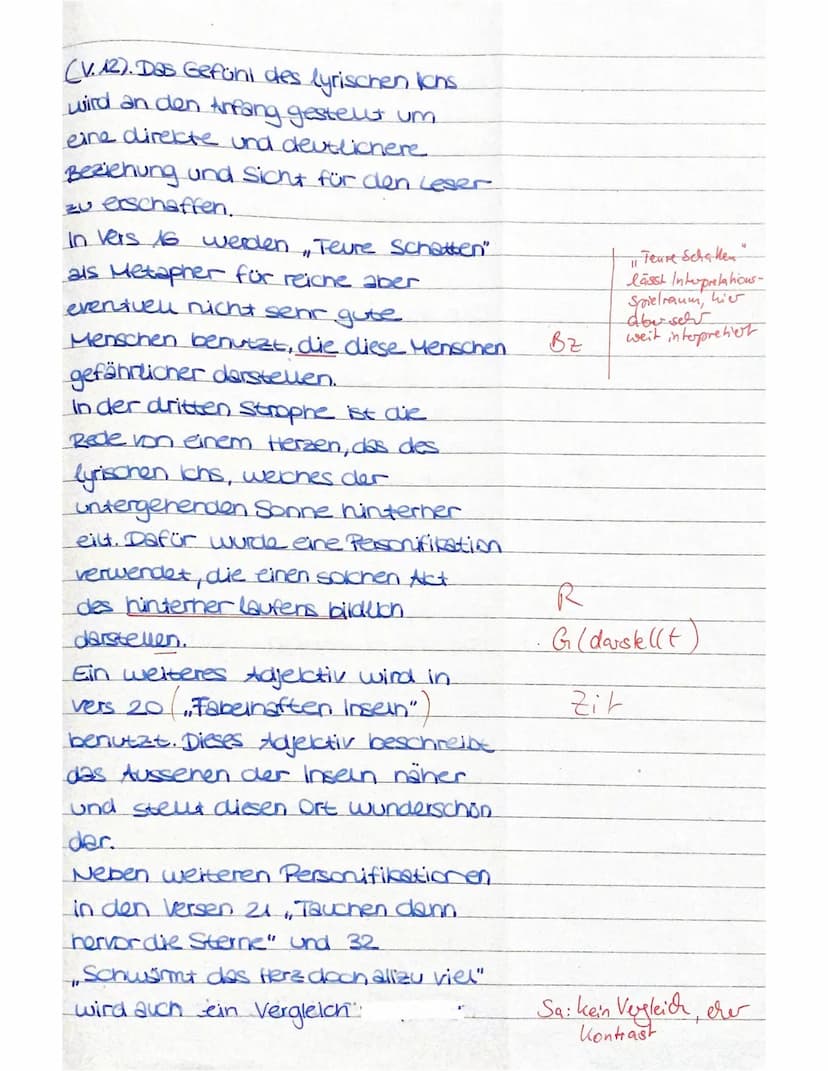 (V. 12). Das Gefühl des lyrischen Ichs
wird an den Anfang gestellt um
eine direkte und deutlichere
Beziehung und Sicht für den Leser
zu erschaffen.
In Vers 16 werden „Teure Schatten"
als Metapher für reiche aber
eventuell nicht sehr gute
Menschen benutzt, die diese Menschen
gefährlicher darstellen.
In der dritten Strophe ist die
Rede von einem Herzen, das des
lyrischen Ichs, welches der
untergehenden Sonne hinterher
eilt. Dafür wurde eine Personifikation
verwendet, die einen solchen Akt
des hinterher laufens bildlich
darstellen.
Ein weiteres Adjektiv wird in
Vers 20 („Fabelhaften Inseln")
benutzt. Dieses Adjektiv beschreibt
das Aussehen der Inseln näher
und stellt diesen Ort wunderschön
dar.
Neben weiteren Personifikationen
in den Versen 21 „Tauchen dann
hervor die Sterne" und 32
„Schwärmt das Herz doch allzu viel"
wird auch ein Vergleich
„Teure Schatten"
lässt Interpretations-
spielraum, hier
aber sehr
weit interpretiert
Bz
R
G (darstellt)
Zit
Sa: kein Vergleich, eher
Kontrast